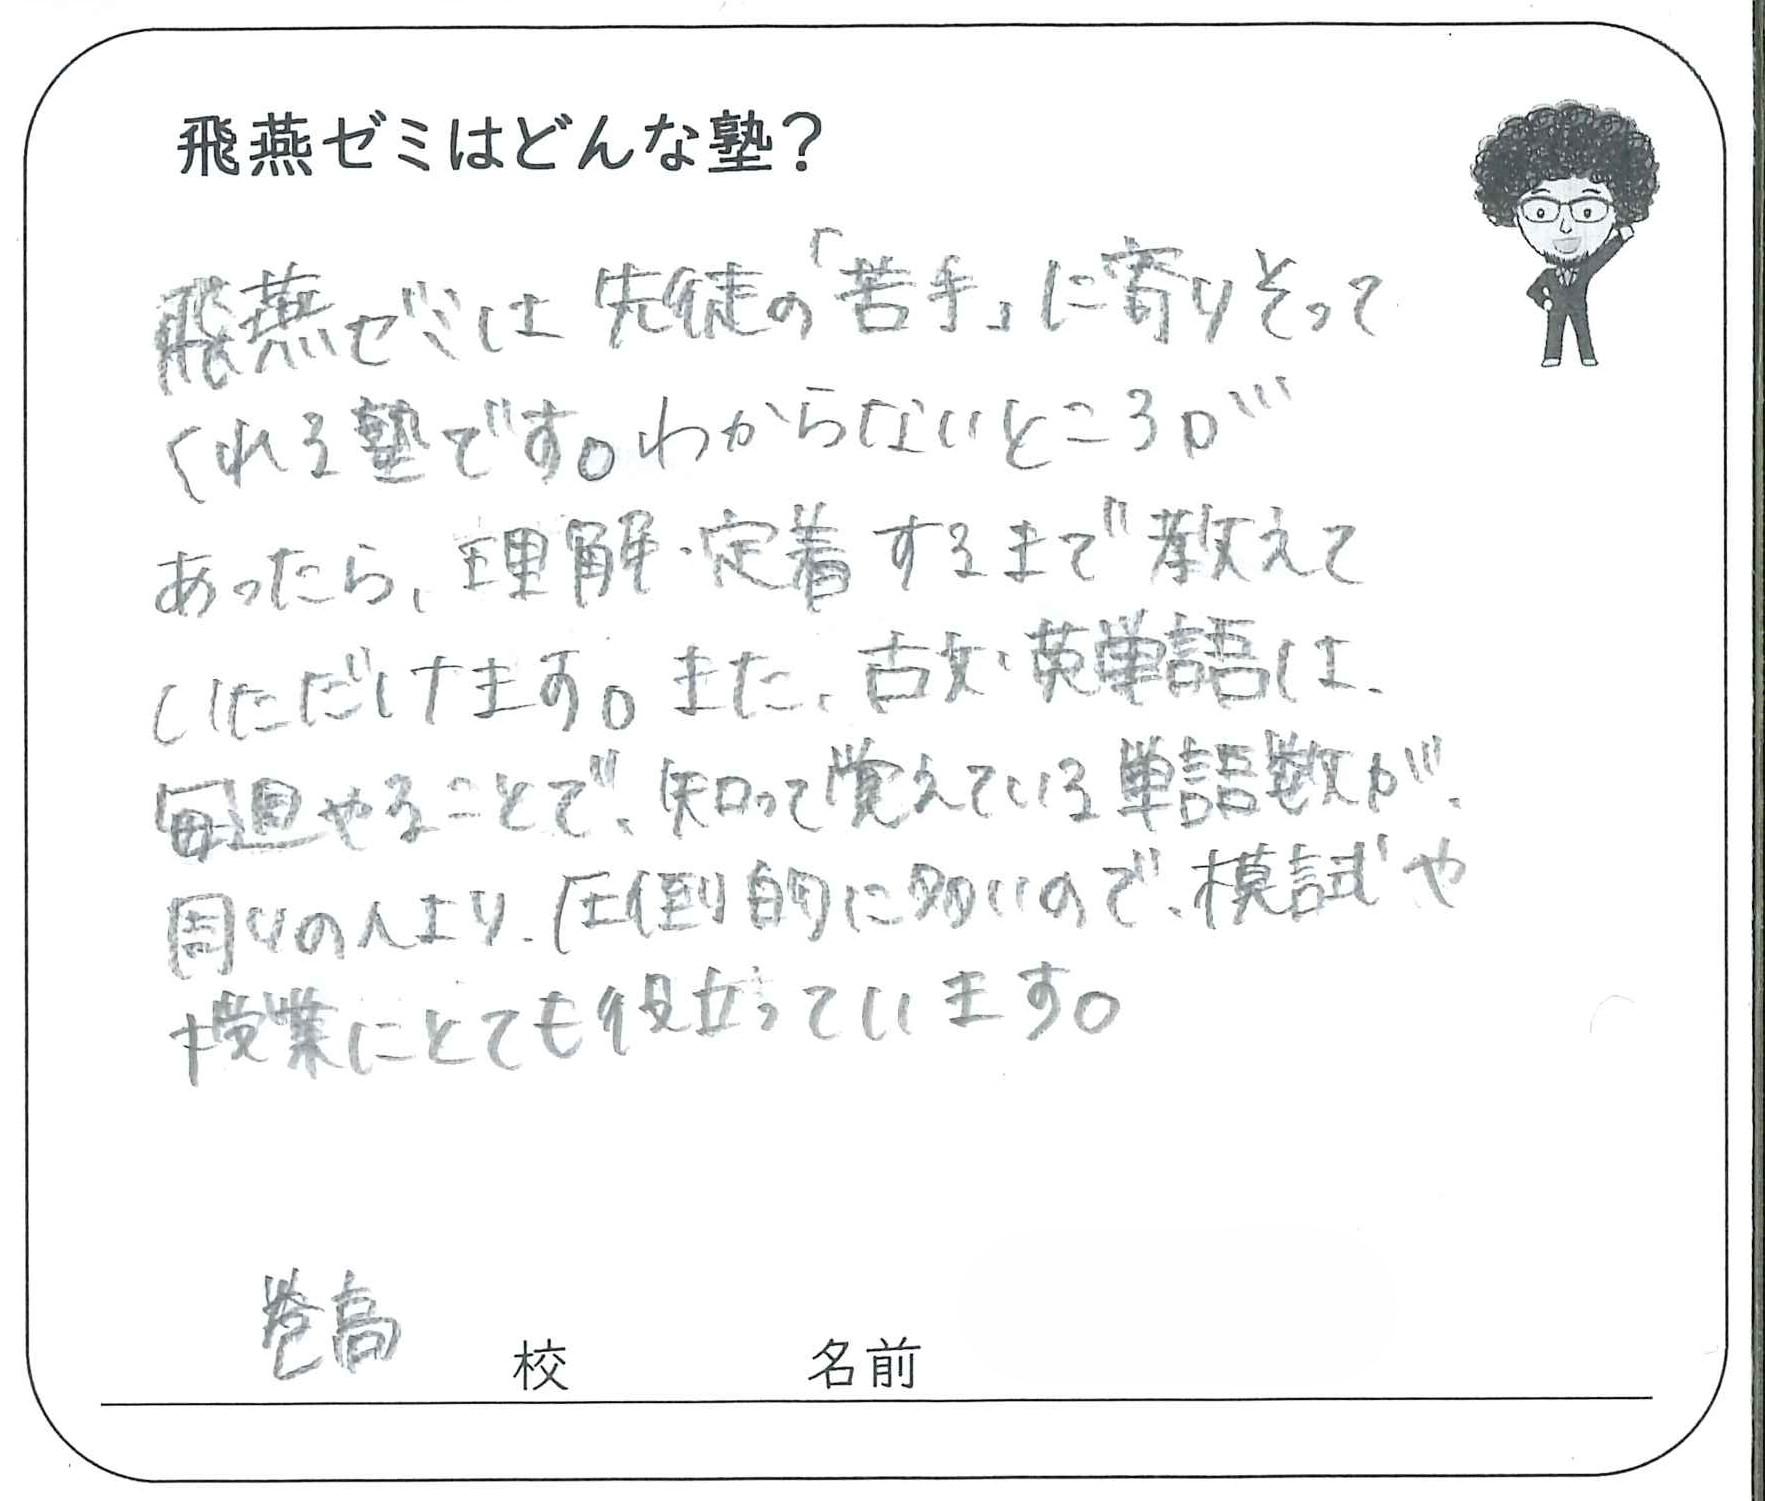 飛燕ゼミはどんな塾？
飛燕ゼミは先徒の「苦手」に寄りそって
くれる塾です。わからないところが
あったら、理解・定着するまで教えて
いただけます。また、古文・英単語は、
毎週やることで、知って覚えている単語数が、
周りの人より、圧倒的に多いので、模試や
授業にとても役立っています。
巻高 校 名前